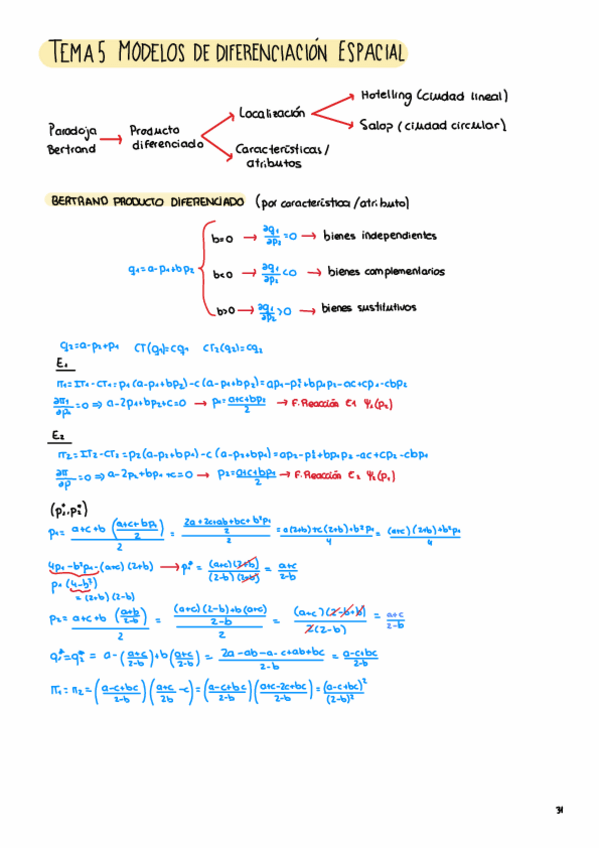 TEMA 5 MODELOS DE DIFERENCIACIÓN ESPACIAL
Paradoja Bertrand → Producto diferenciado → Localización → Hotelling (ciudad lineal)
→ Salop (ciudad circular)
→ Características/ atributos
BERTRAND PRODUCTO DIFERENCIADO (por característica/atributo)
q1=a-p1+bp2
b=0 → ∂q1/∂p2 =0 → bienes independientes
b<0 → ∂q1/∂p2 <0 → bienes complementarios
b>0 → ∂q1/∂p2 >0 → bienes sustitutivos
q2=a-p2+p1 CT(q1)=cq1 CT2(q2)=cq2
E1
π1=IT1-CT1=p1(a-p1+bp2)-c(a-p1+bp2)=ap1-p1²+bp1p2-ac+cp1-cbp2
∂π1/∂p1 =0 ⇒ a-2p1+bp2+c=0 → p1=(a+c+bp2)/2 → F.Reacción E1 Ψ1(p2)
E2
π2=IT2-CT2=p2(a-p2+bp1)-c(a-p2+bp1)=ap2-p2²+bp1p2-ac+cp2-cbp1
∂π/∂p =0 ⇒ a-2p2+bp1+c=0 → p2=(a+c+bp1)/2 → F.Reacción E2 Ψ2(p1)
(p1*,p2*)
p1= (a+c+b((a+c+bp1)/2))/2 = ((2a+2c+ab+bc+b²p1)/2)/2 = (a(2+b)+c(2+b)+b²p1)/4 = ((a+c)(2+b)+b²p1)/4
4p1-b²p1-(a+c)(2+b) → p1*= ((a+c)(2+b))/((2-b)(2+b)) = (a+c)/(2-b)
p1(4-b²)
=(2+b)(2-b)
p2= (a+c+b((a+b)/(2-b)))/2 = (((a+c)(2-b)+b(a+c))/(2-b))/2 = ((a+c)(2-b+b))/(2(2-b)) = (a+c)/(2-b)
q1*=q2* = a-((a+c)/(2-b))+b((a+c)/(2-b)) = (2a-ab-a-c+ab+bc)/(2-b) = (a-c+bc)/(2-b)
π1=π2=((a-c+bc)/(2-b))((a+c)/(2b) -c)=((a-c+bc)/(2-b))((a+c-2c+bc)/(2-b))=(a-c+bc)²/(2-b)²